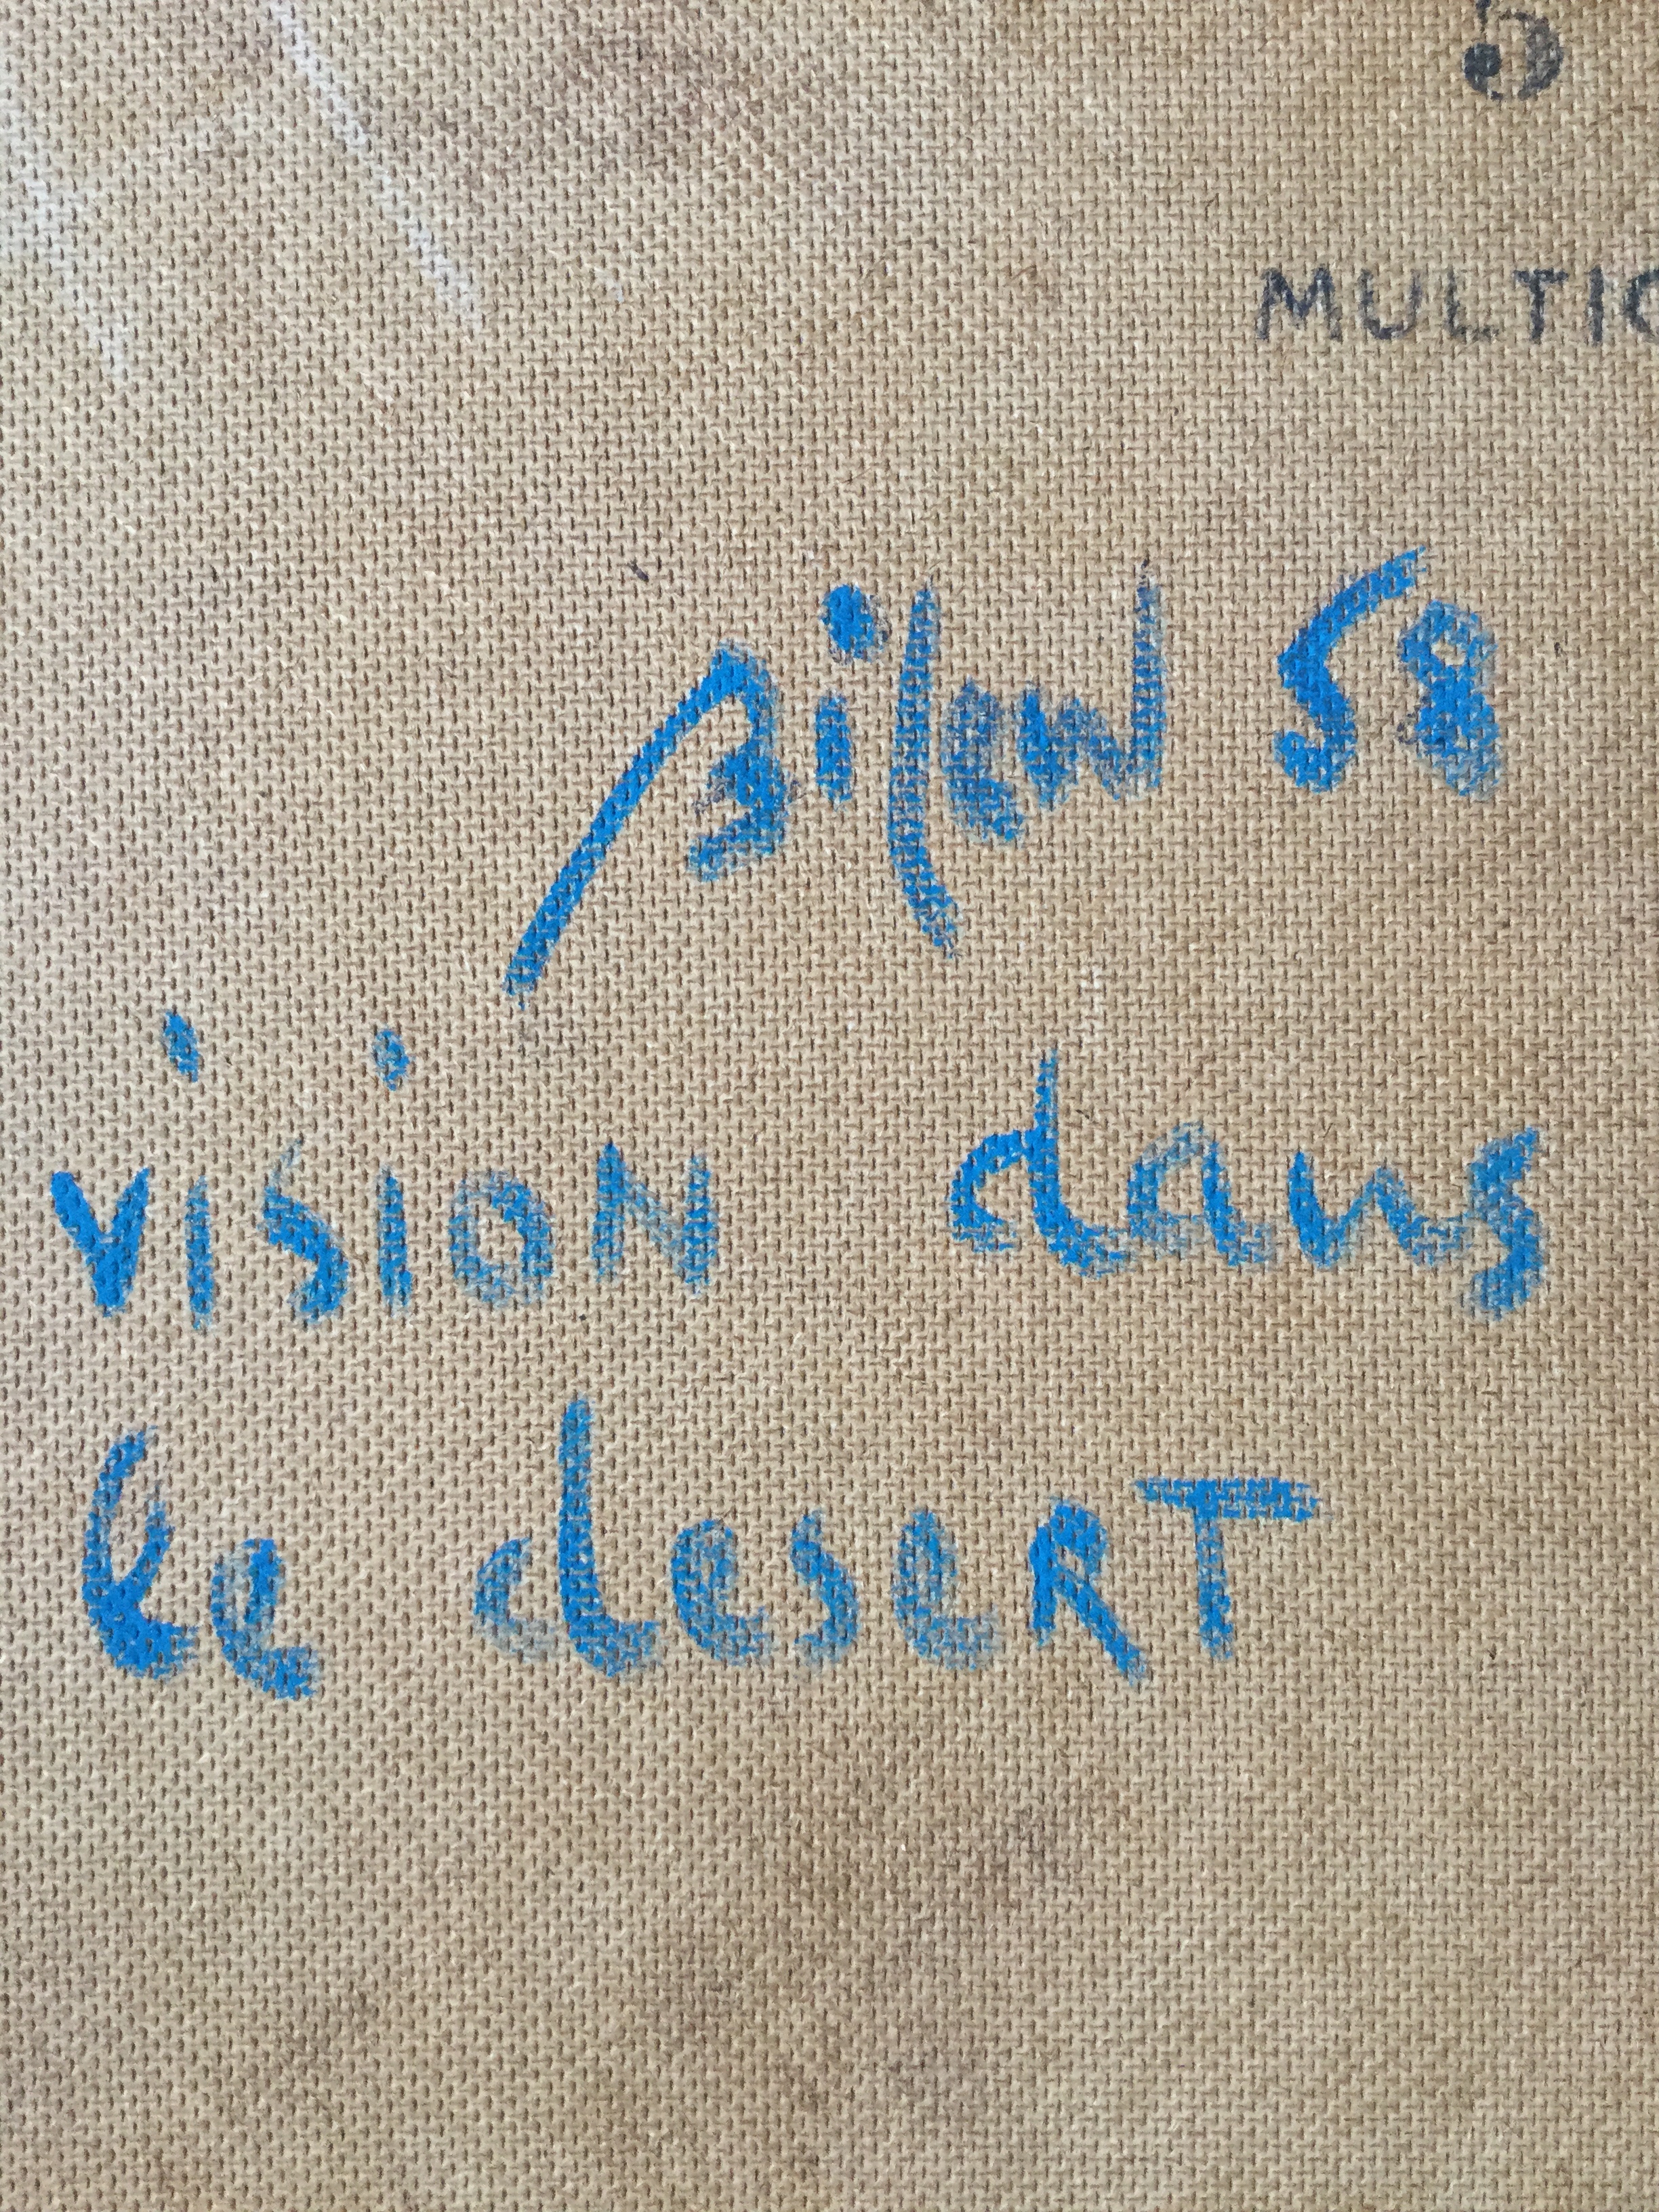 5
MULTIC
58
vision dans
le desert